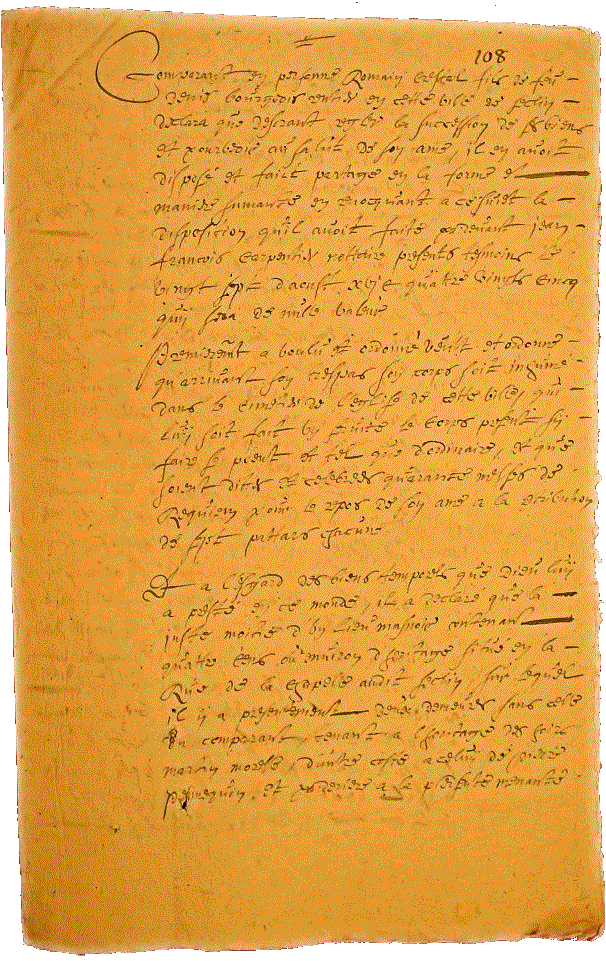 108
Comparant en personne Romain Crespel fils de feu
Denis bourgeois rentier en cette ville de Seclin
declara que desirant regler la succession de ses biens
et pourveoir au salut de son ame, il en avoit
disposé et faict partage en la forme et
maniere suivante en revocquant a ce suiet la
disposition qu'il avoit faite pardevant Jean
francois Carpentier notaire presents tesmoins le
vingt sept d'aoust xvjc quatre vingts cincq
qui sera de nulle valeur
Premierement a voulu et ordonné veult et ordonne
qu'arrivant son trespas son corps soit inhumé
dans le cimetiere de l'eglise de cette ville, qui
luy soit fait un service le corps present sy
faire se peut et tel que d'ordinaire, et que
soient dictes et celebrées quarante messes de
Requiem pour le repos de son ame a la retribution
de sept pattars chacune
Et a l'esgard des biens temporels que Dieu luy
a presté en ce monde, il a declaré que la
juste moitié d'un lieu manoir contenant
quatre cens ou environ d'heritage situé en la
Rue de la chapelle audit Seclin, sur lequel
il y a presentement deux demeures sans celle
du comparant, tenant a l'heritage des hoirs
martin morelle, d'autre costé a celuy de pierre
et par derriere a la piedsente menante